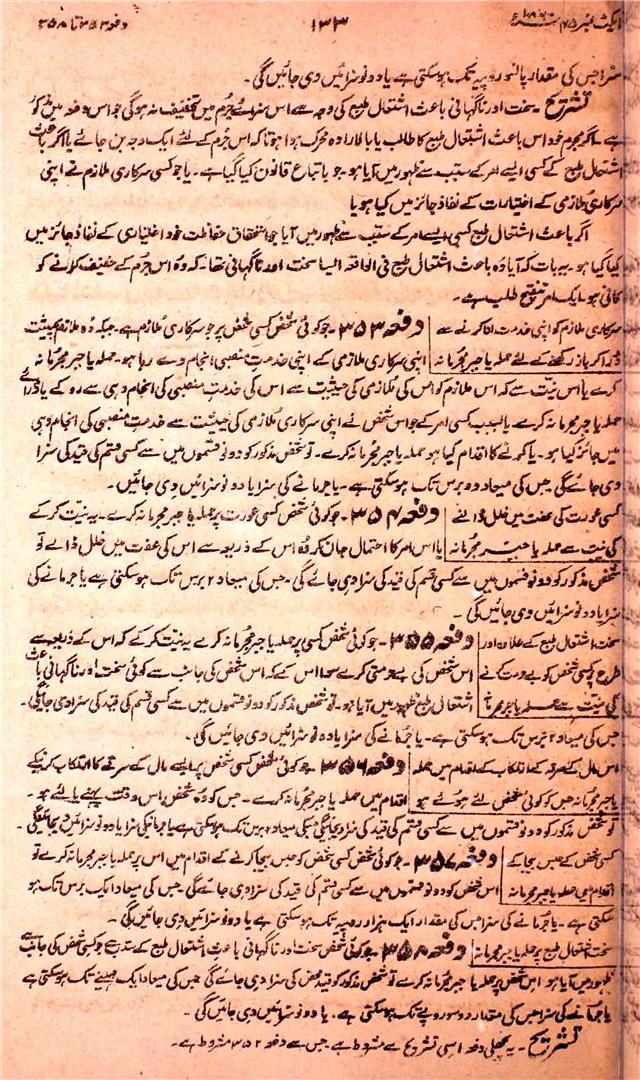 ایکٹ نمبر ۴۵ ۱۸۶۰ء ۱۳۳ دفعہ ۳۵۳ تا ۳۵۸
سزا جس کی مقدار پانسو روپیہ تک ہو سکتی ہے یا دونو سزائیں دی جائیں گی۔
تشریح۔ سخت اور ناگہانی باعث اشتعال طبع کی وجہ سے اس سزائے جرم میں تخفیف نہ ہو گی جو اس دفعہ میں مذکور
ہے۔ اگر مجرم خود اس باعث اشتعال طبع کا طالب یا بالارادہ محرک ہوا ہو تاکہ اس جرم کے لئے ایک وجہ بن جائے یا اگر باعث
اشتعال طبع کے کسی ایسے امر کے سبب سے ظہور میں آیا ہو۔ جو باتباع قانون کیا گیا ہے۔ یا جو کسی سرکاری ملازم نے اپنی
سرکاری ملازمی کے اختیارات کے نفاذ جائز میں کیا ہو یا
اگر باعث اشتعال طبع کسی ایسے امر کے سبب سے ظہور میں آیا جو استحقاق حفاظت خود اختیاری کے نفاذ جائز میں
کیا گیا ہو۔ یہ بات کہ آیا وہ باعث اشتعال طبع فی الواقعہ ایسا سخت اور ناگہانی تھا۔ کہ وہ اس جرم کے خفیف کرنے کو
کافی ہو۔ ایک امر تنقیح طلب ہے۔
سرکاری ملازم کو اپنی خدمت ادا کرنے سے دفعہ ۳۵۳۔ جو کوئی شخص کسی شخص پر جو سرکاری ملازم ہے۔ جبکہ وہ ملازم بحیثیت
ڈرا کر باز رکھنے کے لئے حملہ یا جبر مجرمانہ اپنی سرکاری ملازمی کے اپنی خدمت منصبی انجام دے رہا ہو۔ حملہ یا جبر مجرمانہ
کرے یا اس نیت سے کہ اس ملازم کو اس کی ملازمی کی حیثیت سے اس کی خدمت منصبی کی انجام دہی سے روکے یا ڈرائے
حملہ یا جبر مجرمانہ کرے یا بسبب کسی امر کے جو اس شخص نے اپنی سرکاری ملازمی کی حیثیت سے خدمت منصبی کی انجام دہی
میں جائز کیا ہو۔ یا کرنے کا اقدام کیا ہو حملہ یا جبر مجرمانہ کرے۔ تو شخص مذکور کو دونو قسموں میں سے کسی قسم کی قید کی سزا
دی جائے گی جس کی میعاد دو برس تک ہو سکتی ہے۔ یا جرمانے کی سزا یا دونو سزائیں دی جائیں۔
کسی عورت کی عفت میں خلل ڈالنے دفعہ ۳۵۴۔ جو کوئی شخص کسی عورت پر حملہ یا جبر مجرمانہ کرے۔ یہ نیت کر کے
کی نیت سے حملہ یا جبر مجرمانہ یا اس امر کا احتمال جان کر کہ وہ اس کے ذریعہ سے اس کی عفت میں خلل ڈالے تو
شخص مذکور کو دونو قسموں میں سے کسی قسم کی قید کی سزا دی جائے گی۔ جس کی میعاد ۲ برس تک ہو سکتی ہے یا جرمانے کی
سزا یا دونو سزائیں دی جائیں گی۔
سخت اشتعال طبع کے علاوہ اور دفعہ ۳۵۵۔ جو کوئی شخص کسی پر حملہ یا جبر مجرمانہ کرے یہ نیت کر کے کہ اس کے ذریعہ سے
طرح کسی شخص کو بے حرمت کرنے اس شخص کی بے حرمتی کرے سوا اس کے کہ اس شخص کی جانب سے کوئی سخت اور ناگہانی باعث
کی نیت سے حملہ یا جبر مجرمانہ اشتعال طبع ظہور میں آیا ہو۔ تو شخص مذکور کو دونو قسموں میں سے کسی قسم کی قید کی سزا دی جائیگی۔
جس کی میعاد ۲ برس تک ہو سکتی ہے۔ یا جرمانے کی سزا یا دونو سزائیں دی جائیں گی۔
اس مال کے سرقہ کے ارتکاب کے اقدام میں حملہ دفعہ ۳۵۶۔ جو کوئی شخص کسی شخص پر ایسے مال کے سرقے کا ارتکاب کرنیکے
یا جبر مجرمانہ جس کو کوئی شخص لئے ہوئے ہو اقدام میں حملہ یا جبر مجرمانہ کرے۔ جس کو وہ شخص اس وقت پہنے یا لئے ہو۔
تو شخص مذکور کو دونو قسموں میں سے کسی قسم کی قید کی سزا دی جائیگی جسکی میعاد ۲ برس تک ہو سکتی ہے یا جرمانیکی سزا یا دونو سزائیں دیجائینگی۔
کسی شخص کے حبس بیجا کے دفعہ ۳۵۷۔ جو کوئی شخص کسی شخص کو حبس بیجا کرنے کے اقدام میں اس پر حملہ یا جبر مجرمانہ کرے تو
اقدام میں حملہ یا جبر مجرمانہ اس شخص کو دونو قسموں میں سے کسی قسم کی قید کی سزا دی جائے گی۔ جس کی میعاد ایک برس تک ہو
سکتی ہے۔ یا جرمانے کی سزا جس کی مقدار ایک ہزار روپیہ تک ہو سکتی ہے یا دونو سزائیں دی جائیں گی۔
سخت اشتعال طبع پر حملہ یا جبر مجرمانہ دفعہ ۳۵۸۔ جو کوئی شخص سخت اور ناگہانی باعث اشتعال طبع کے سبب سے جو کسی شخص کی جانب سے
ظہور میں آیا ہو اس شخص پر حملہ یا جبر مجرمانہ کرے تو شخص مذکور کو قید محض کی سزا دی جائے گی جس کی میعاد ایک مہینے تک ہو سکتی ہے
یا جرمانے کی سزا جس کی مقدار دو سو روپے تک ہو سکتی ہے۔ یا دونو سزائیں دی جائیں گی۔
تشریح۔ یہ پچھلی دفعہ اسی تشریح سے مشروط ہے جس سے دفعہ ۳۵۲ مشروط ہے۔